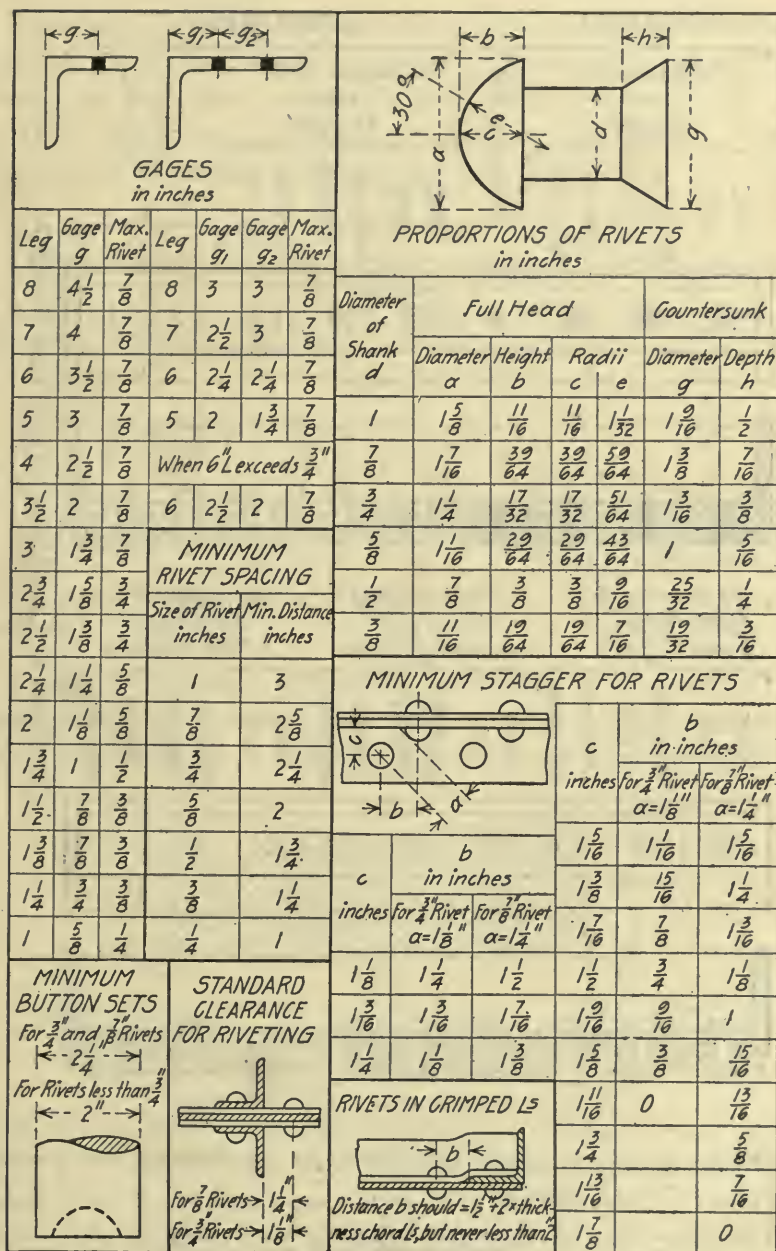 g g₁ g₂
GAGES
in inches
Leg Gage g Max. Rivet Leg Gage g₁ Gage g₂ Max. Rivet
8 4 1/2 7/8 8 3 3 7/8
7 4 7/8 7 2 1/2 3 7/8
6 3 1/2 7/8 6 2 1/4 2 1/4 7/8
5 3 7/8 5 2 1 3/4 7/8
4 2 1/2 7/8 When 6" L exceeds 3/4"
3 1/2 2 7/8 6 2 1/2 2 7/8
3 1 3/4 7/8
2 3/4 1 5/8 3/4
2 1/2 1 3/8 3/4
2 1/4 1 1/4 5/8
2 1 1/8 5/8
1 3/4 1 1/2
1 1/2 7/8 3/8
1 3/8 7/8 3/8
1 1/4 3/4 3/8
1 5/8 1/4
MINIMUM
RIVET SPACING
Size of Rivet Min. Distance
inches inches
1 3
7/8 2 5/8
3/4 2 1/4
5/8 2
1/2 1 3/4
3/8 1 1/4
1/4 1
MINIMUM
BUTTON SETS
For 3/4" and 7/8" Rivets
2 1/4"
For Rivets less than 3/4"
2"
STANDARD
CLEARANCE
FOR RIVETING
For 7/8" Rivets 1 1/4"
For 3/4" Rivets 1 1/8"
b h
30° a e c d g
PROPORTIONS OF RIVETS
in inches
Diameter of Shank d Full Head Countersunk
Diameter a Height b Radii c e Diameter g Depth h
1 1 5/8 11/16 11/16 1 1/32 1 9/16 1/2
7/8 1 7/16 39/64 39/64 59/64 1 3/8 7/16
3/4 1 1/4 17/32 17/32 51/64 1 3/16 3/8
5/8 1 1/16 29/64 29/64 43/64 1 5/16
1/2 7/8 3/8 3/8 9/16 25/32 1/4
3/8 11/16 19/64 19/64 7/16 19/32 3/16
MINIMUM STAGGER FOR RIVETS
c b a
c b
inches in inches
For 3/4" Rivet For 7/8" Rivet
a=1 1/8" a=1 1/4"
1 1/8 1 1/4 1 1/2
1 3/16 1 3/16 1 7/16
1 1/4 1 1/8 1 3/8
c b
inches in inches
For 3/4" Rivet For 7/8" Rivet
a=1 1/8" a=1 1/4"
1 5/16 1 1/16 1 5/16
1 3/8 15/16 1 1/4
1 7/16 7/8 1 3/16
1 1/2 3/4 1 1/8
1 9/16 9/16 1
1 5/8 3/8 15/16
1 11/16 0 13/16
1 3/4 5/8
1 13/16 7/16
1 7/8 0
RIVETS IN CRIMPED Ls
b
Distance b should = 1 1/2" + 2 × thick-
ness chord Ls, but never less than 2"